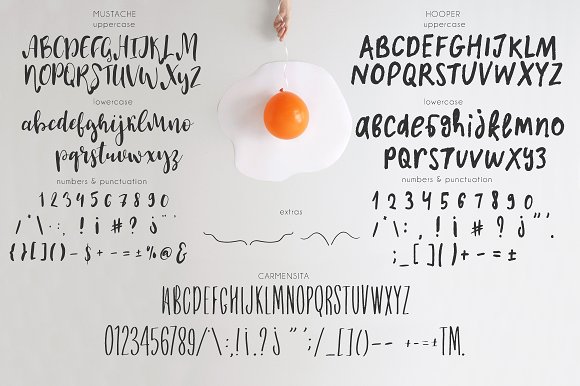 MUSTACHE
uppercase
ABCDEFGHIJKLM
NOPQRSTUVWXYZ
lowercase
abcdefghijklmno
pqrstuvwxyz
numbers & punctuation
1 2 3 4 5 6 7 8 9 0
/ * \ · : , ! i # ? j " ' .
{ } [ ] ( ) – $ + – = ± % @ &
extras
HOOPER
uppercase
ABCDEFGHIJKLM
NOPQRSTUVWXYZ
lowercase
abcdefghijklmno
pqrstuvwxyz
numbers & punctuation
1 2 3 4 5 6 7 8 9 0
/ * \ : , ! i # ? j " ' .
; _ [ ] ( ) + – = ±
CARMENSITA
ABCDEFGHIJKLMNOPQRSTUVWXYZ
0123456789/*\:,!i.?j"';/_[]()-- +-=±TM.